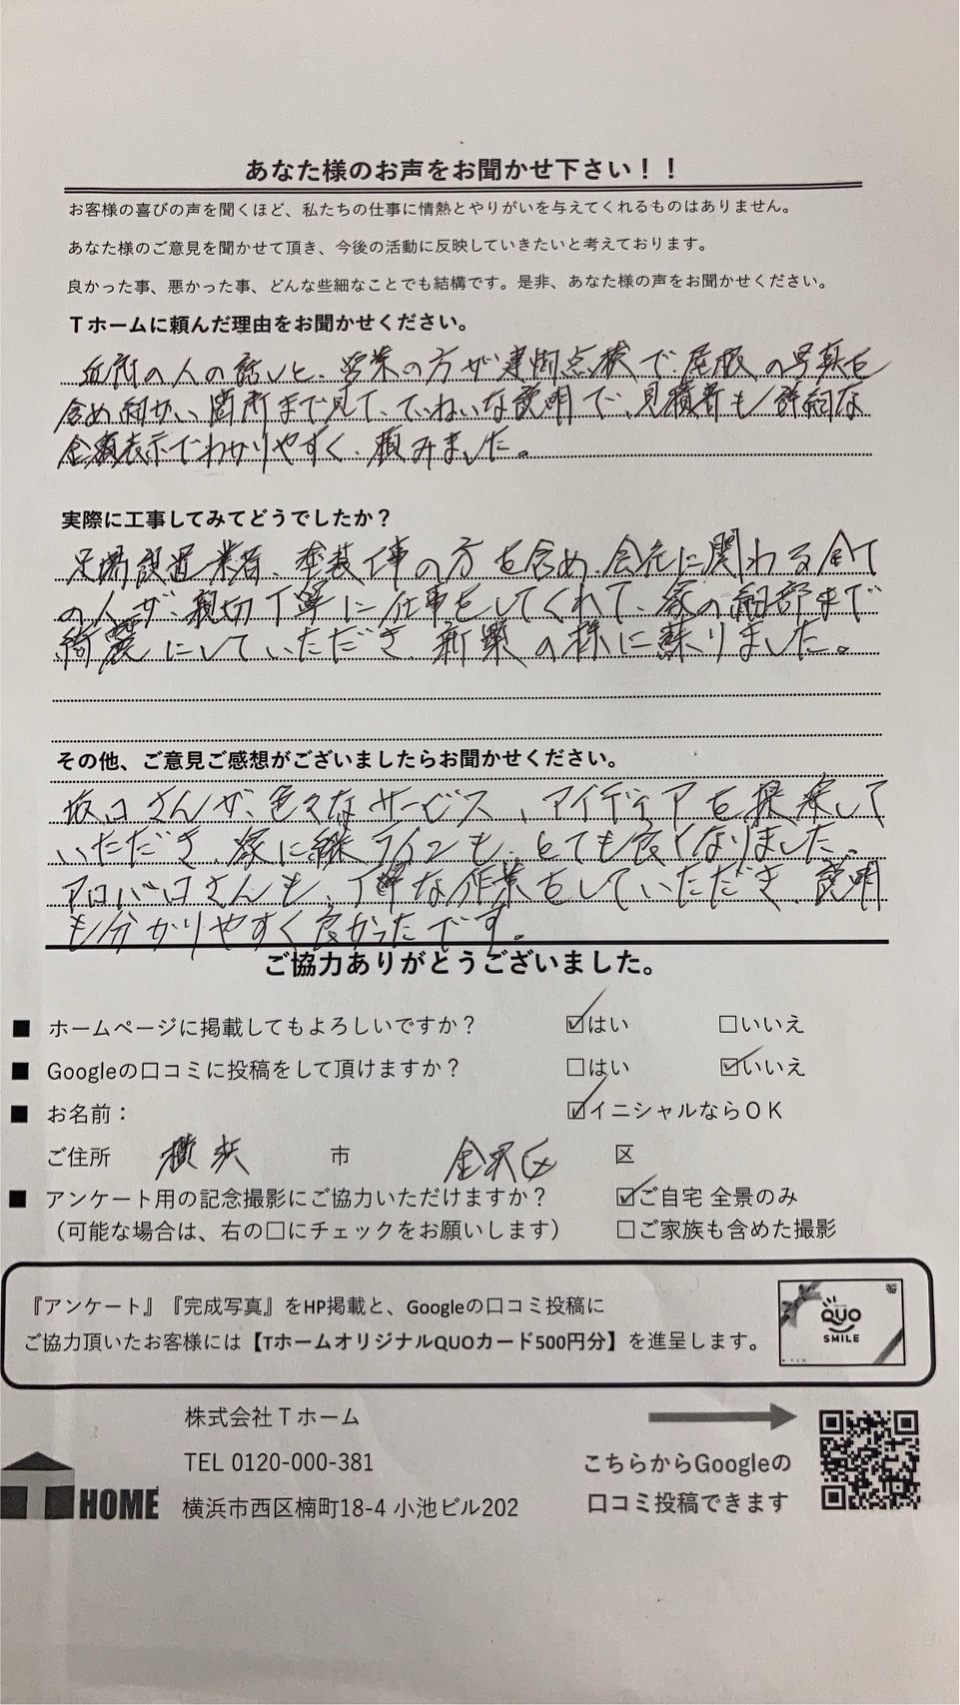 あなた様のお声をお聞かせ下さい！！
お客様の喜びの声を聞くほど、私たちの仕事に情熱とやりがいを与えてくれるものはありません。
あなた様のご意見を聞かせて頂き、今後の活動に反映していきたいと考えております。
良かった事、悪かった事、どんな些細なことでも結構です。是非、あなた様の声をお聞かせください。
Tホームに頼んだ理由をお聞かせください。
近所の人の話しと、営業の方が建物点検で、屋根の写真を
含め細かい箇所まで見て、ていねいな説明で、見積書も詳細な
金額表示でわかりやすく、頼みました。
実際に工事してみてどうでしたか？
足場設置業者、塗装仕事の方を含め、会社に関わる全て
の人が、親切丁寧に仕事をしてくれて、家の細部まで
綺麗にしていただき、新築の様に蘇りました。
その他、ご意見ご感想がございましたらお聞かせください。
坂口さんが、色々なサービス、アイディアを提案して
いただき、家に縦ラインも、とても良くなりました。
アロバロさんも、丁寧な作業をしていただき、説明
も分かりやすく良かったです。
ご協力ありがとうございました。
■ ホームページに掲載してもよろしいですか？ ☑はい □いいえ
■ Googleの口コミに投稿をして頂けますか？ □はい ☑いいえ
■ お名前： ☑イニシャルならOK
ご住所 横浜 市 金沢区 区
■ アンケート用の記念撮影にご協力いただけますか？ ☑ご自宅 全景のみ
（可能な場合は、右の□にチェックをお願いします） □ご家族も含めた撮影
『アンケート』『完成写真』をHP掲載と、Googleの口コミ投稿に
ご協力頂いたお客様には【TホームオリジナルQUOカード500円分】を進呈します。
QUO
SMILE
株式会社Tホーム
TEL 0120-000-381
横浜市西区楠町18-4 小池ビル202
THOME
こちらからGoogleの
口コミ投稿できます